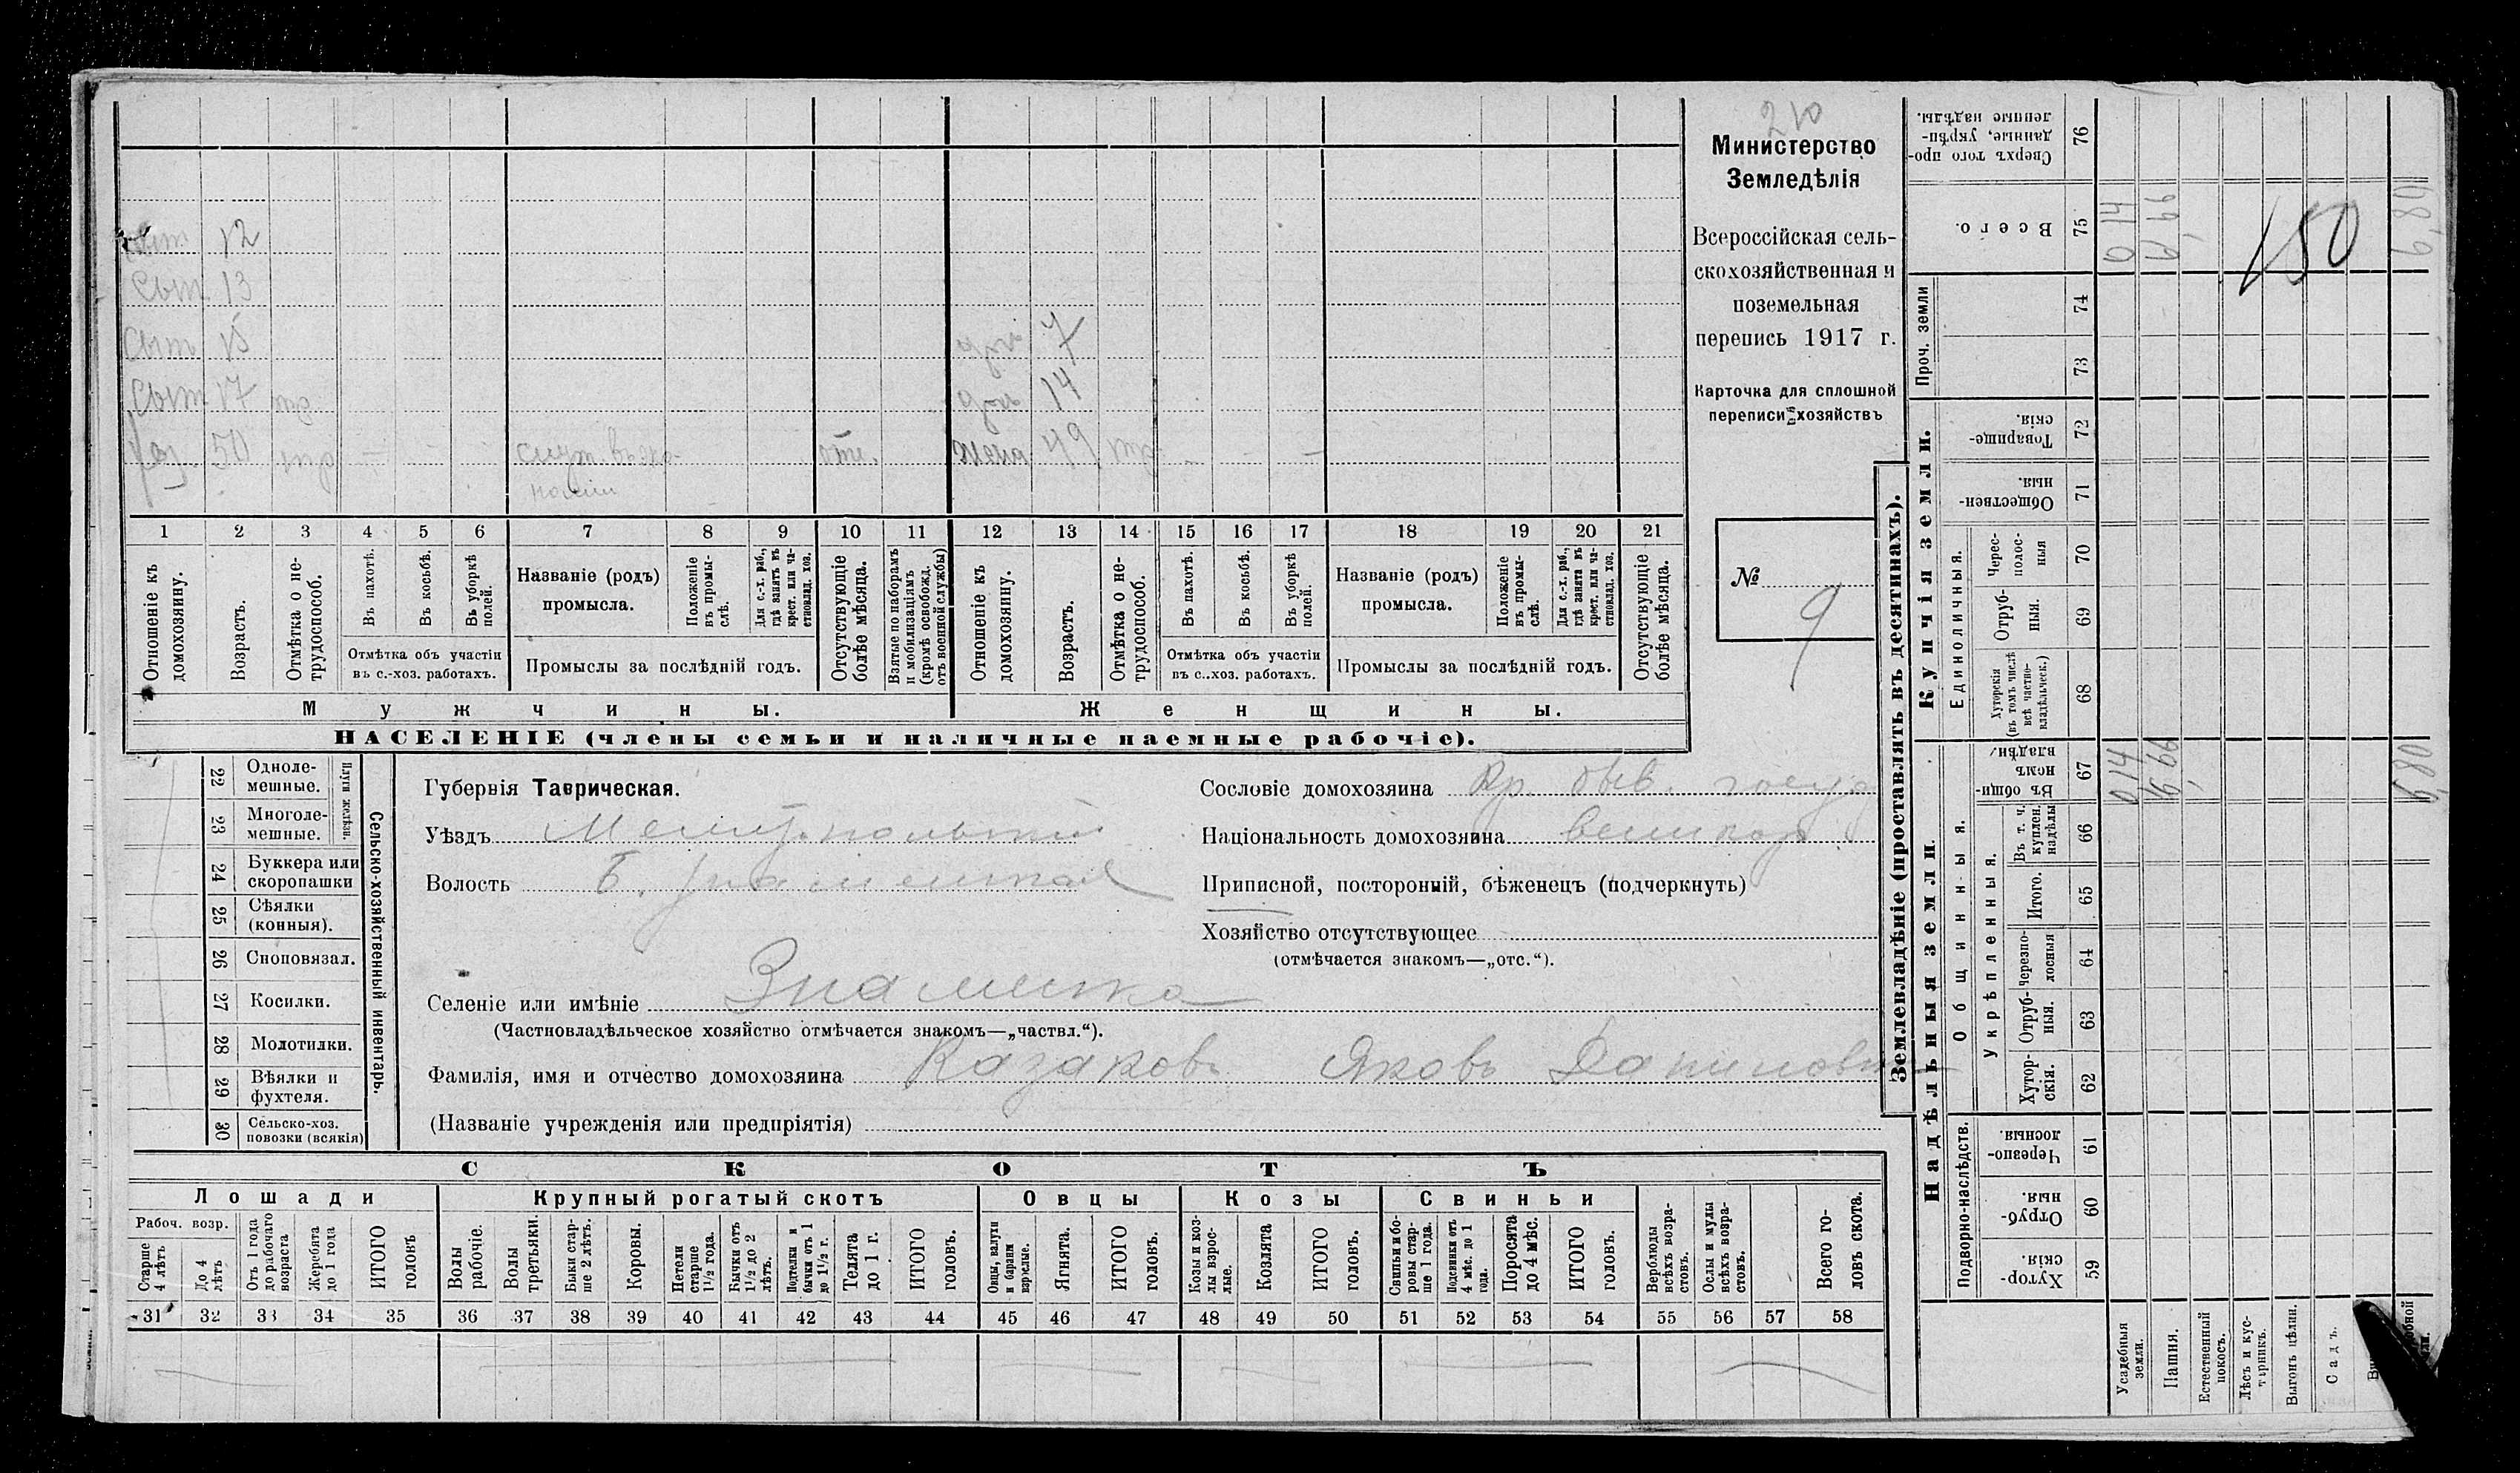 210
Министерство
Земледѣлія
Всероссійская сель-
скохозяйственная и
поземельная
перепись 1917 г.
Карточка для сплошной
переписи хозяйствъ
№ 9
12
Сын 13
Сын 15
Сын 17
50
доч 7
доч 14
жена 49
1 2 3 4 5 6 7 8 9 10 11 12 13 14 15 16 17 18 19 20 21
Отношеніе къ домохозяину.
Возрастъ.
Отмѣтка о не-трудоспособ.
Въ пахотѣ.
Въ косьбѣ.
Въ уборкѣ полей.
Отмѣтка объ участіи
въ с.-хоз. работахъ.
Названіе (родъ)
промысла.
Положеніе въ промы-слѣ.
Для с.-х. раб., гдѣ занятъ въ крест. или ча-стновлад. хоз.
Промыслы за послѣдній годъ.
Отсутствующіе болѣе мѣсяца.
Взятые по наборамъ и мобилизаціямъ (кромѣ освобожд. отъ военной службы)
Отношеніе къ домохозяину.
Возрастъ.
Отмѣтка о не-трудоспособ.
Въ пахотѣ.
Въ косьбѣ.
Въ уборкѣ полей.
Отмѣтка объ участіи
въ с..хоз. работахъ.
Названіе (родъ)
промысла.
Положеніе въ промы-слѣ.
Для с.-х. раб., гдѣ занята въ крест. или ча-стновлад. хоз.
Промыслы за послѣдній годъ.
Отсутствующіе болѣе мѣсяца.
Мужчины.
Женщины.
НАСЕЛЕНІЕ (члены семьи и наличные наемные рабочіе).
Сельско-хозяйственный инвентарь.
Плуги желѣзн.
22 Одноле-мешные.
23 Многоле-мешные.
24 Буккера или скоропашки
25 Сѣялки (конныя).
26 Сноповязал.
27 Косилки.
28 Молотилки.
29 Вѣялки и фухтеля.
30 Сельско-хоз. повозки (всякія)
Губернія Таврическая.
Уѣздъ Мелитопольскій
Волость Б. Знаменская
Селеніе или имѣніе Знаменка
(Частновладѣльческое хозяйство отмѣчается знакомъ—„частвл.“).
Фамилія, имя и отчество домохозяина Казаковъ Яковъ Даниловъ
(Названіе учрежденія или предпріятія)
Сословіе домохозяина Кр. быв. госуд
Національность домохозяина великор
Приписной, посторонній, бѣженецъ (подчеркнуть)
Хозяйство отсутствующее
(отмѣчается знакомъ—„отс.“).
СКОТЪ
Лошади
Крупный рогатый скотъ
Овцы
Козы
Свиньи
Рабоч. возр.
Старше 4 лѣтъ
До 4 лѣтъ
Отъ 1 года до рабочаго возраста
Жеребята до 1 года
ИТОГО головъ
Волы рабочіе.
Волы третьяки.
Быки стар-ше 2 лѣтъ.
Коровы.
Нетели старше 1½ года.
Бычки отъ 1½ до 2 лѣтъ.
Подтелки и бычки отъ 1 до 1½ г.
Телята до 1 г.
ИТОГО головъ.
Овцы, валухи и бараны взрослые.
Ягнята.
ИТОГО головъ.
Козы и коз-лы взрос-лые.
Козлята
ИТОГО головъ.
Свиньи и бо-ровы стар-ше 1 года.
Подсвинки отъ 4 мѣс. до 1 года.
Поросята до 4 мѣс.
ИТОГО головъ.
Верблюды всѣхъ возра-стовъ.
Ослы и мулы всѣхъ возра-стовъ.
Всего го-ловъ скота.
31 32 33 34 35 36 37 38 39 40 41 42 43 44 45 46 47 48 49 50 51 52 53 54 55 56 57 58
Землевладѣніе (проставлять въ десятинахъ).
Надѣльныя земли.
Купчія земли.
Проч. земли
Подворно-наслѣдств.
Общинныя.
Укрѣпленныя.
Единоличныя.
Сверхъ того про-данные, укрѣп-ленные надѣлы. 76
Всего. 75
74
73
Товарище-скія. 72
Обществен-ныя. 71
Черес-полос-ныя 70
Отруб-ныя. 69
Хуторскія (въ томъ числѣ всѣ частно-владѣльческ.) 68
Въ общи-номъ владѣн. 67
Въ т. ч. куплен. надѣлы 66
Итого. 65
Черезпо-лосныя 64
Отруб-ныя. 63
Хутор-скія. 62
Черезпо-лосныя. 61
Отруб-ныя. 60
Хутор-скія. 59
Усадебныя земли.
Пашня.
Естественный покосъ.
Лѣсъ и кус-тарникъ.
Выгонъ цѣлин.
Садъ.
014
6,66
150
6,80
014
6,66
6,80